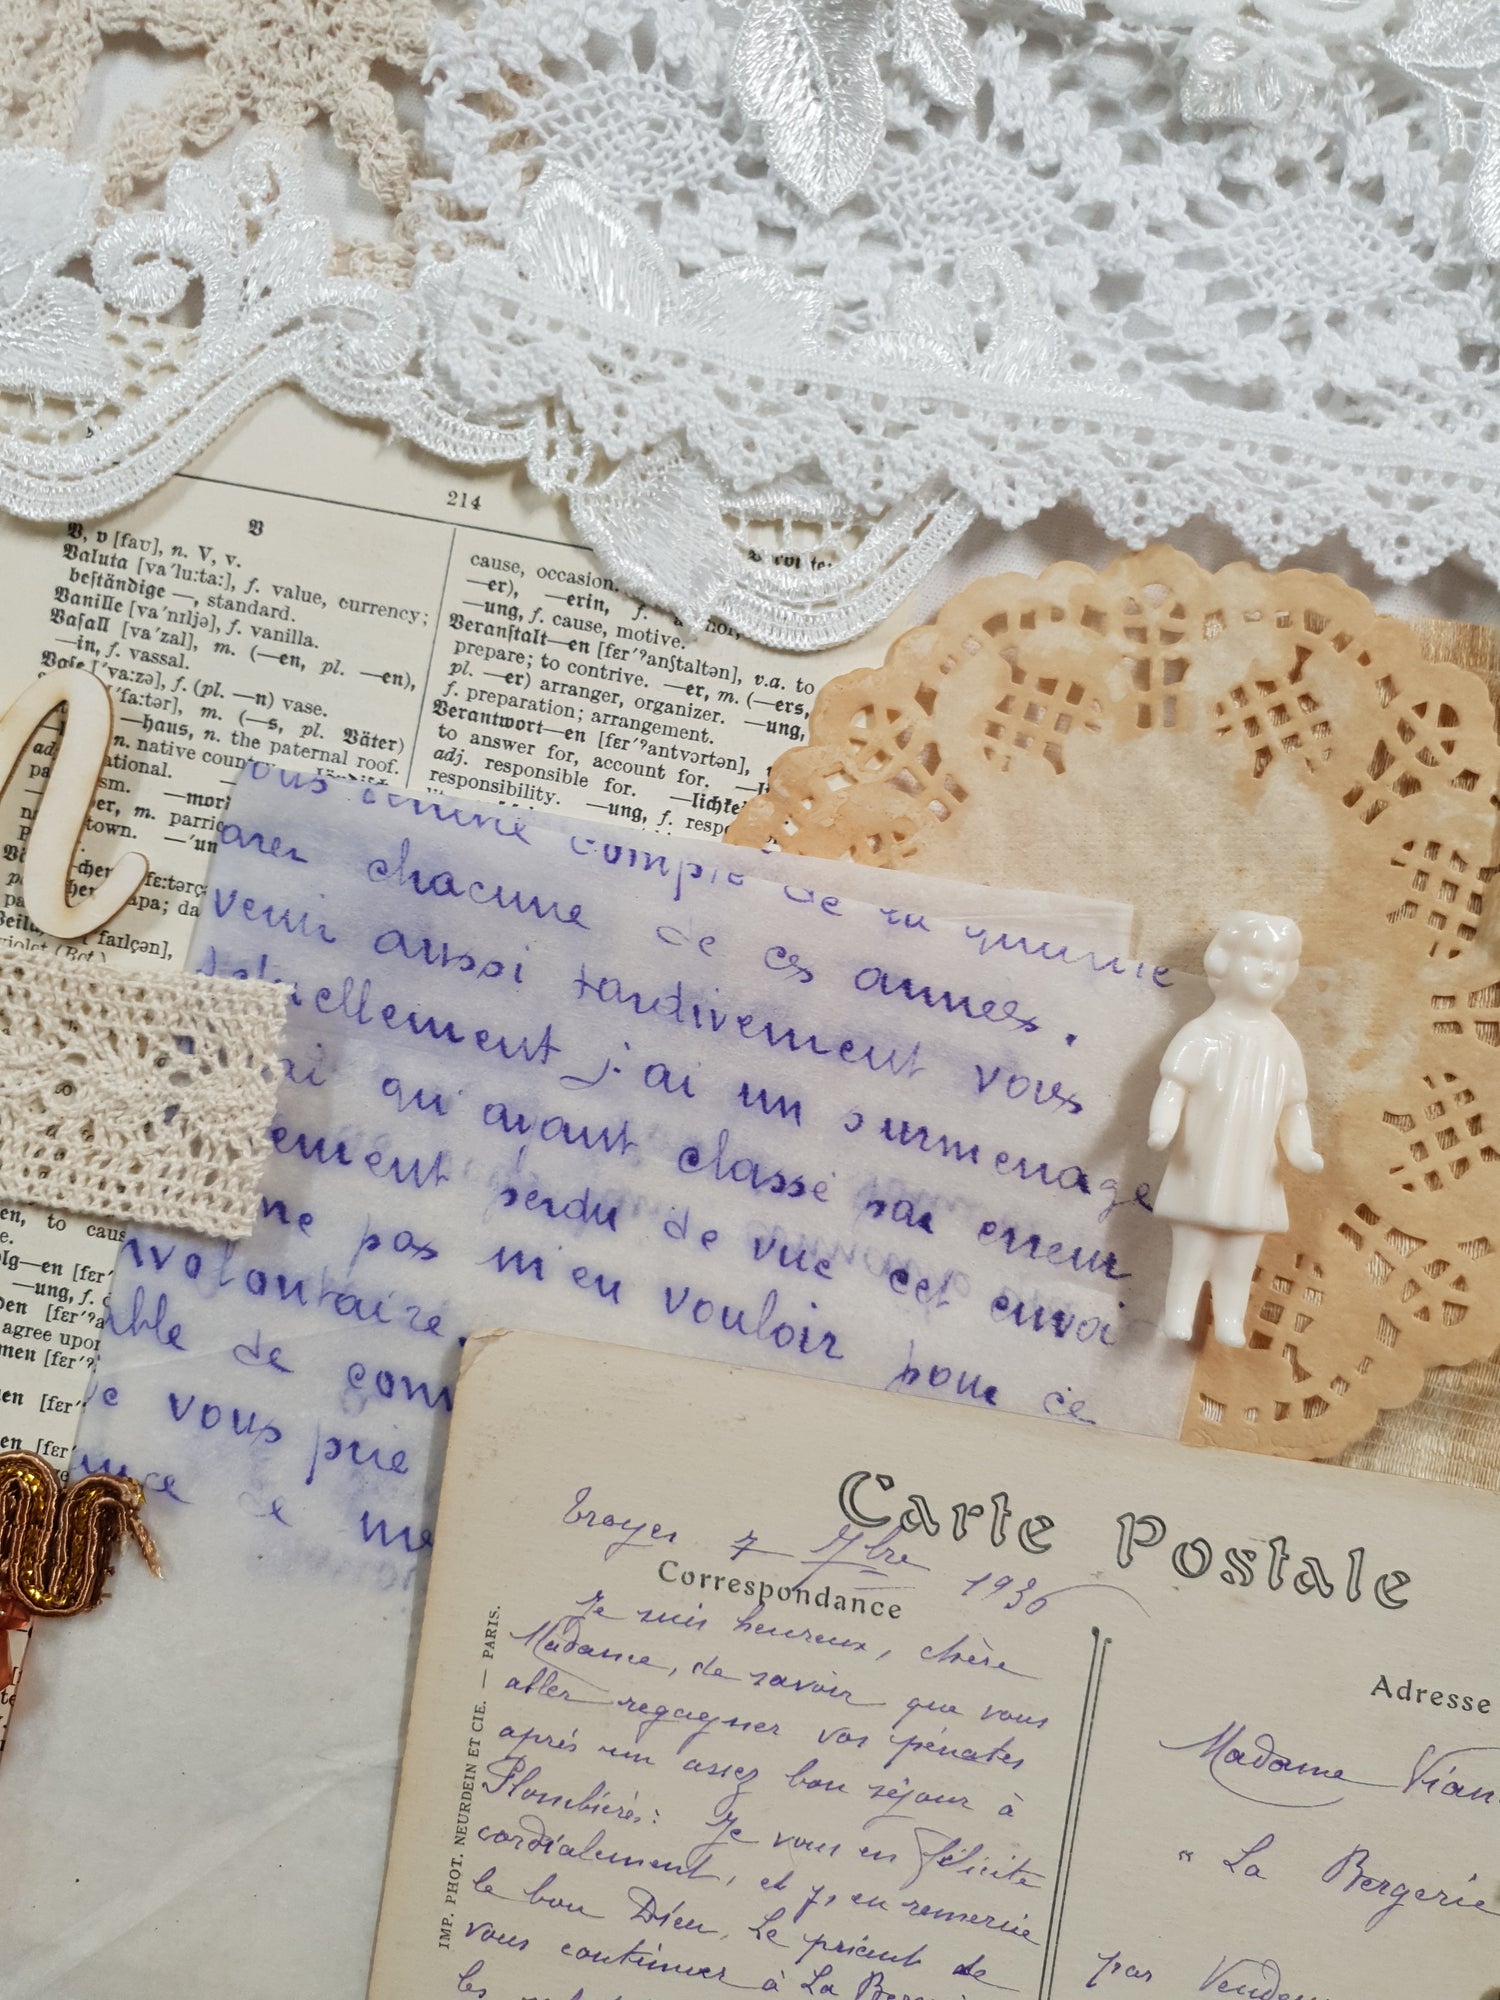 214
V
V, v [faʊ], n. V, v.
Valuta [vaˈluːtaː], f. value, currency;
beständige —, standard.
Vanille [vaˈnɪljə], f. vanilla.
Vasall [vaˈzal], m. (—en, pl. —en),
—in, f. vassal.
Vase [ˈvaːzə], f. (pl. —n) vase.
ˈfaːtər], m. (—s, pl. Väter)
—haus, n. the paternal roof.
n. native
ational.
ism. —mor
er, m. parri
town. —'un
[faɪlçən],
violet (Bot.)
cause, occasion.
—er), —erin, f.
—ung, f. cause, motive.
Veranstalt—en [fɛrˈʔanʃtaltən], v.a. to
prepare; to contrive. —er, m. (—ers,
pl. —er) arranger, organizer. —ung,
f. preparation; arrangement.
Verantwort—en [fɛrˈʔantvɔrtən],
to answer for, account for.
adj. responsible for. —lichke
responsibility. —ung, f. resp
en, to caus
—ung, f.
agree upon
compte de la
chacune de ces années.
venir aussi tardivement vous
ellement j'ai un surmenage
qu'ayant classé par erreur
ement perdu de vue cet envoi
ne pas m'en vouloir pour ce
volontaire.
de com
vous prie
de me
Carte Postale
Troyes 7 7bre 1936
Correspondance
Je suis heureux, chère
Madame, de savoir que vous
allez regagner vos pénates
après un assez bon séjour à
Plombières: Je vous en félicite
cordialement, et j'en remercie
le bon Dieu, Le priant de
vous continuer à La
les
IMP. PHOT. NEURDEIN ET CIE. — PARIS.
Adresse
Madame Vian
" La Bergerie
par Vendeu